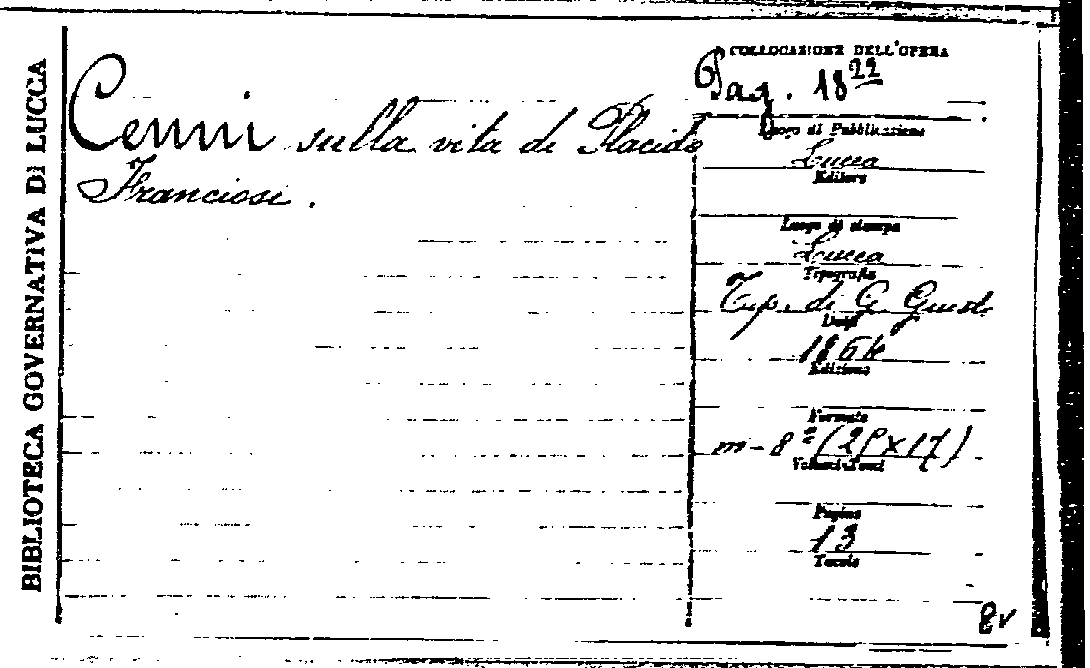 BIBLIOTECA GOVERNATIVA DI LUCCA
Cenni sulla vita di Placido
Franciosi.
COLLOCAZIONE DELL'OPERA
Pag. 18 22
Luogo di Pubblicazione
Lucca
Editore
Luogo di stampa
Lucca
Tipografia
Tip. di G. Giusti
Data
1864
Edizione
Formato
m-8º (2 x17)
Volumi-Tomi
Pagine
13
Tavole